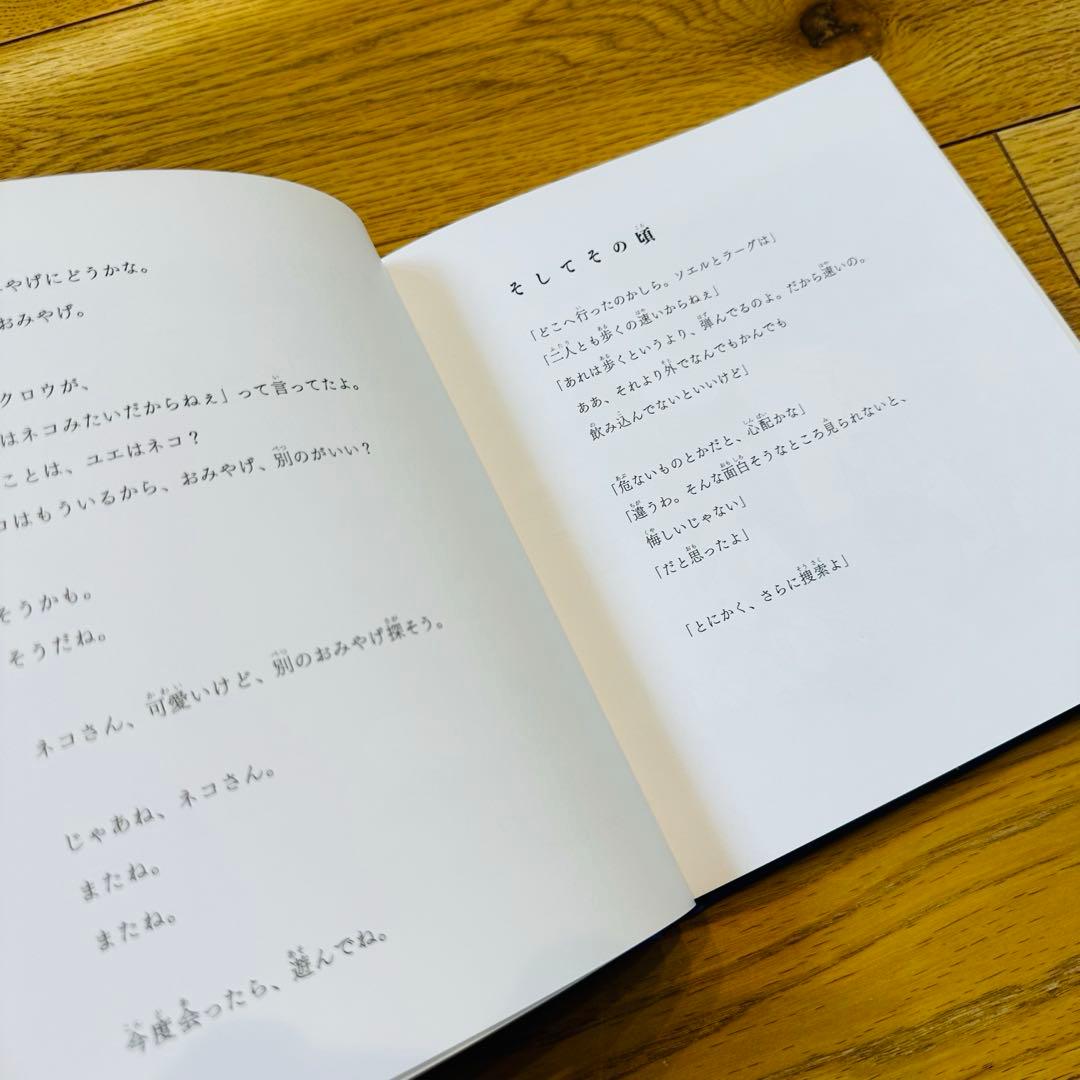 やげにどうかな。
おみやげ。
クロウが、
はネコみたいだからねぇ」って言ってたよ。
ことは、ユエはネコ？
コはもういるから、おみやげ、別のがいい？
そうかも。
そうだね。
ネコさん、可愛いけど、別のおみやげ探そう。
じゃあね、ネコさん。
またね。
またね。
今度会ったら、遊んでね。
そしてその頃
「どこへ行ったのかしら。ソエルとラーグは」
「二人とも歩くの速いからねぇ」
「あれは歩くというより、弾んでるのよ。だから速いの。
ああ、それより外でなんでもかんでも
飲み込んでないといいけど」
「危ないものとかだと、心配かな」
「違うわ。そんな面白そうなところ見られないと、
悔しいじゃない」
「だと思ったよ」
「とにかく、さらに捜索よ」